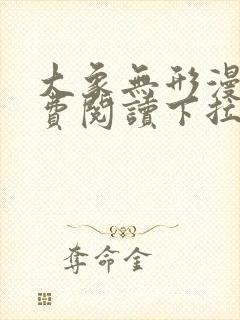 大象無形漫
費閱讀下拉
奪命金